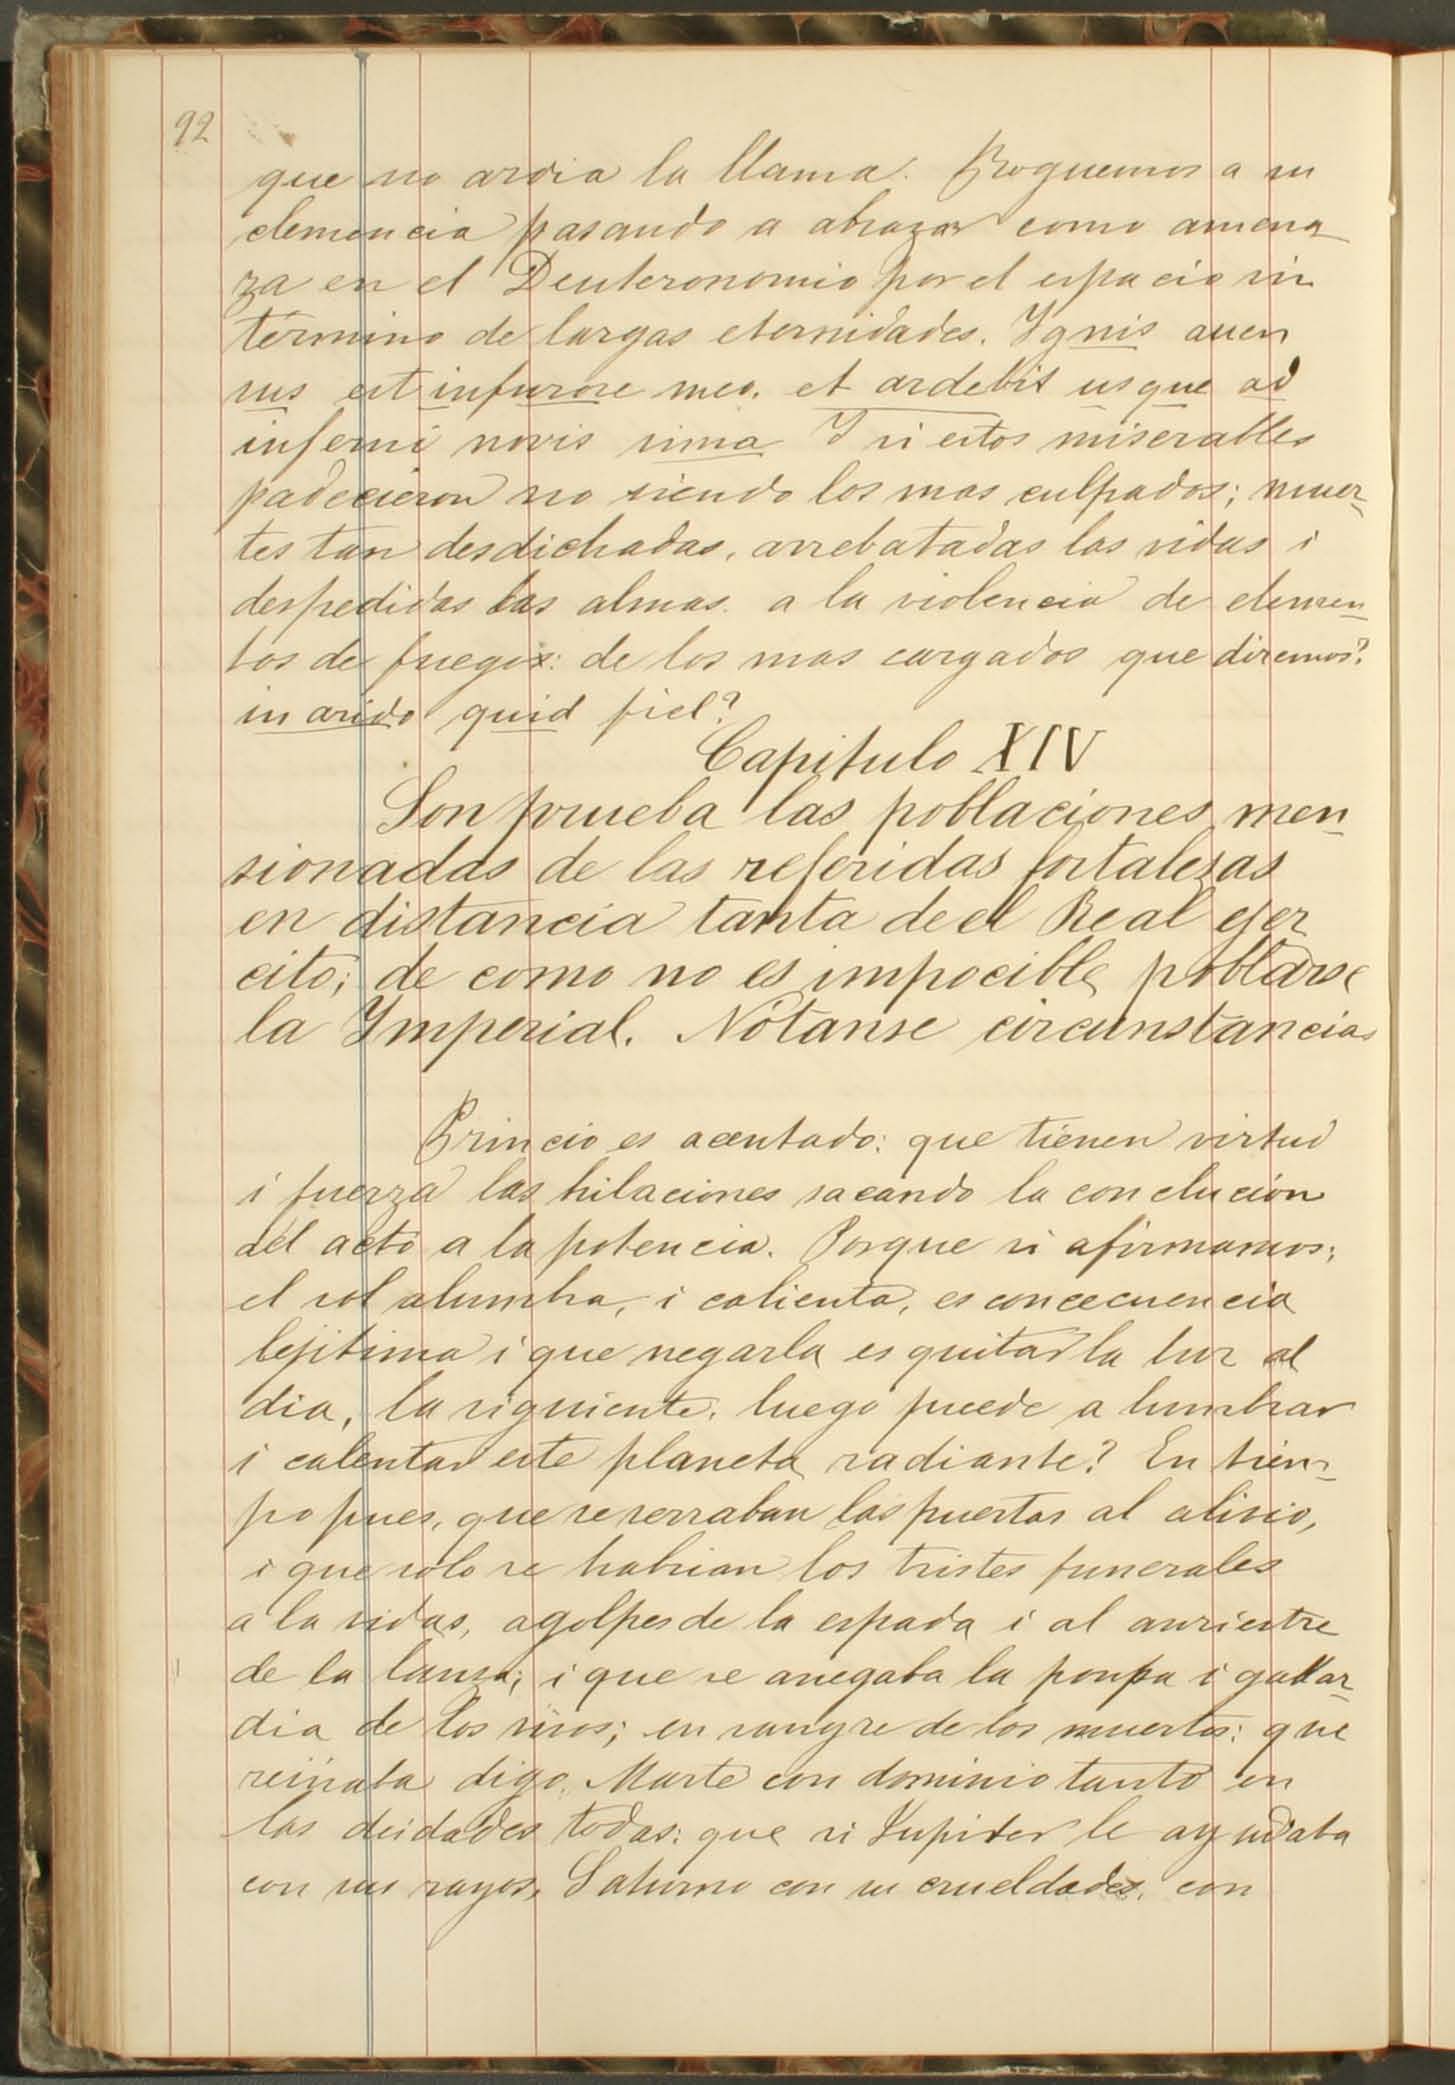 92
que no ardia la llama. Roguemos a su
clemencia pasando a abrazar como amena
za en el Deuteronomio por el espacio sin
término de largas eternidades. Ignis auen
sus est infurore meo. et ardebit usque ad
inferni novis sima I si estos miserables
padecieron no siendo los mas culpados; muer-
tes tan desdichadas, arrebatadas las vidas i
despedidas las almas a la violencia de elemen-
tos de fuegos: de los mas cargados que diremos?
in arido quid fiel?
Capitulo XIV
Son prueba las poblaciones men-
sionadas de las referidas fortalesas
en distancia tanta de el Real ejer
cito; de como no es impocible poblarse
la Imperial. Nótanse circunstancias
Princio es acentado: que tienen virtud
i fuerza las hilaciones sacando la conclucion
del acto a la potencia. Porque si afirmamos;
el sol alumbra, i calienta, es concecuencia
lejitima i que negarla es quitar la luz al
dia, la siguiente. luego puede a lumbrar
i calentar este planeta radiante? En tiem-
po pues, que se serraban las puertas al alivio,
i que solo se habrian los tristes funerales
a la vidas, a golpes de la espada i al
de la lansa; i que se anegaba la ponpa i gallar-
dia de los vivos; en sangre de los muertos: que
reinaba digo. Marte con dominio tanto en
las deidades todas: que si Jupiter le ayudaba
con sus rayos, Saturno con su crueldades, con